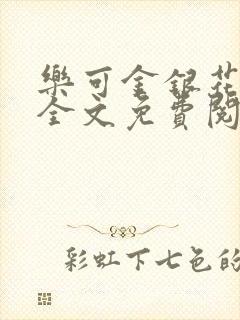 樂可金銀花
全文免費閱
彩虹下七色的